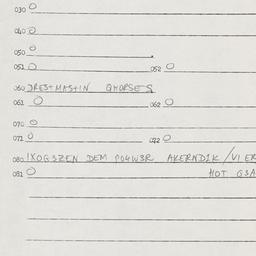 030 O
040 O
050 O
051 O 052 O
060 DREST MASTIN QHORSES
061 O 062 O
070 O
071 O 072 O
080 IXOGSZEN DEM PO4W3R AKERND1K / VI ER
081 O HOT G3A